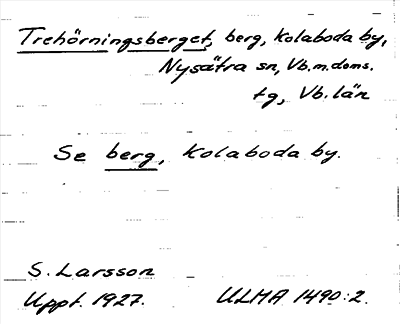 Trehörningsberget, berg, Kolaboda by,
Nysätra sn, Vb.m.doms.
tg, Vb. län
Se berg, Kolaboda by.
S. Larsson
Uppt. 1927. ULMA 1490:2.